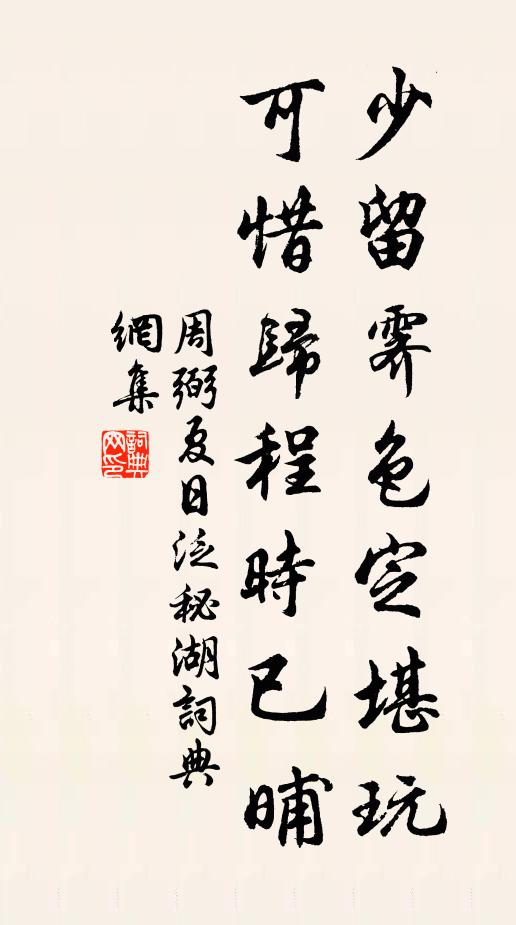 少留霽色定堪玩
可惜歸程時已晡
周弼夏日泛秘湖詞典
網集
詞典網印